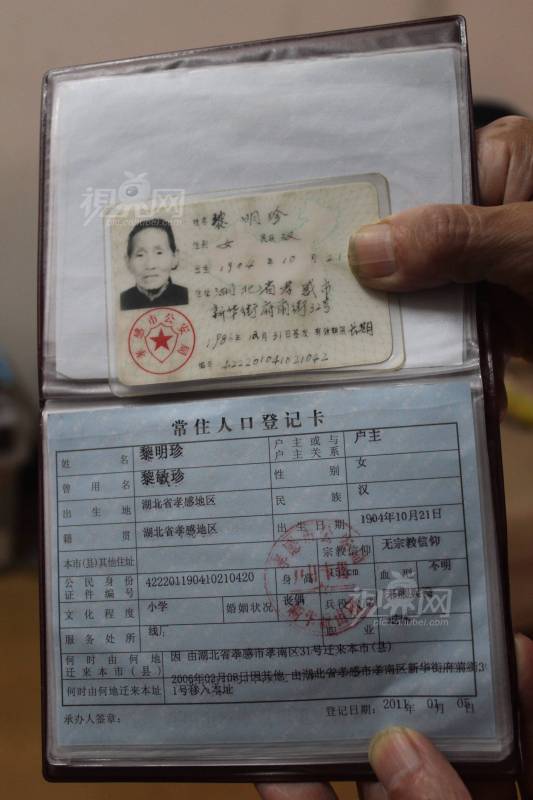 视界网
姓名 黎明珍
性别 女 民族 汉
出生 1904 年 10 月 21
住址 湖北省孝感市
新华街府前街32号
月31日签发 有效期限 长期
编号 422201041021042
孝感市公安局
常住人口登记卡
姓名 黎明珍 户主或与户主关系 户主
曾用名 黎敏珍 性别 女
出生地 湖北省孝感地区 民族 汉
籍贯 湖北省孝感地区 出生日期 1904年10月21日
本市(县)其他住址 宗教信仰 无宗教信仰
公民身份证件编号 422201190410210420 身高 152cm 血型 不明
文化程度 小学 婚姻状况 丧偶 兵役
服务处所 线; 职业
何时由何地迁来本市(县) 因 由湖北省孝感市孝南区31号迁来本市(县)
何时由何地迁来本址 2006年02月08日因其他, 由湖北省孝感市孝南区新华街府前街3
1号移入本址
承办人签章: 登记日期: 2011 年 01 月 05 日
视界网
pic.cqnews.net